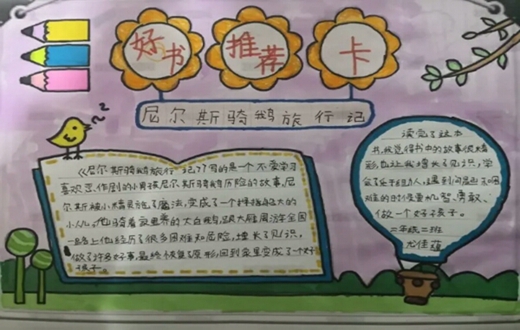 好书推荐卡
尼尔斯骑鹅旅行记
《尼尔斯骑鹅旅行记》写的是一个不爱学习
喜欢恶作剧的小男孩尼尔斯骑鹅历险的故事,尼
尔斯被小精灵施了魔法,变成了一个拇指般大的
小人儿,他骑着家里养的大白鹅,跟大雁周游全国
一路上他经历了很多困难和危险,增长了见识,
做了许多好事,最终恢复原形,回到家里变成了一个好
孩子。
读完了这本
书,我觉得书中的故事很精
彩,也让我增长了见识,学
会了乐于助人,遇到问题
困难的时候要机智、勇敢、
做一个好孩子。
二年级二班
尤佳